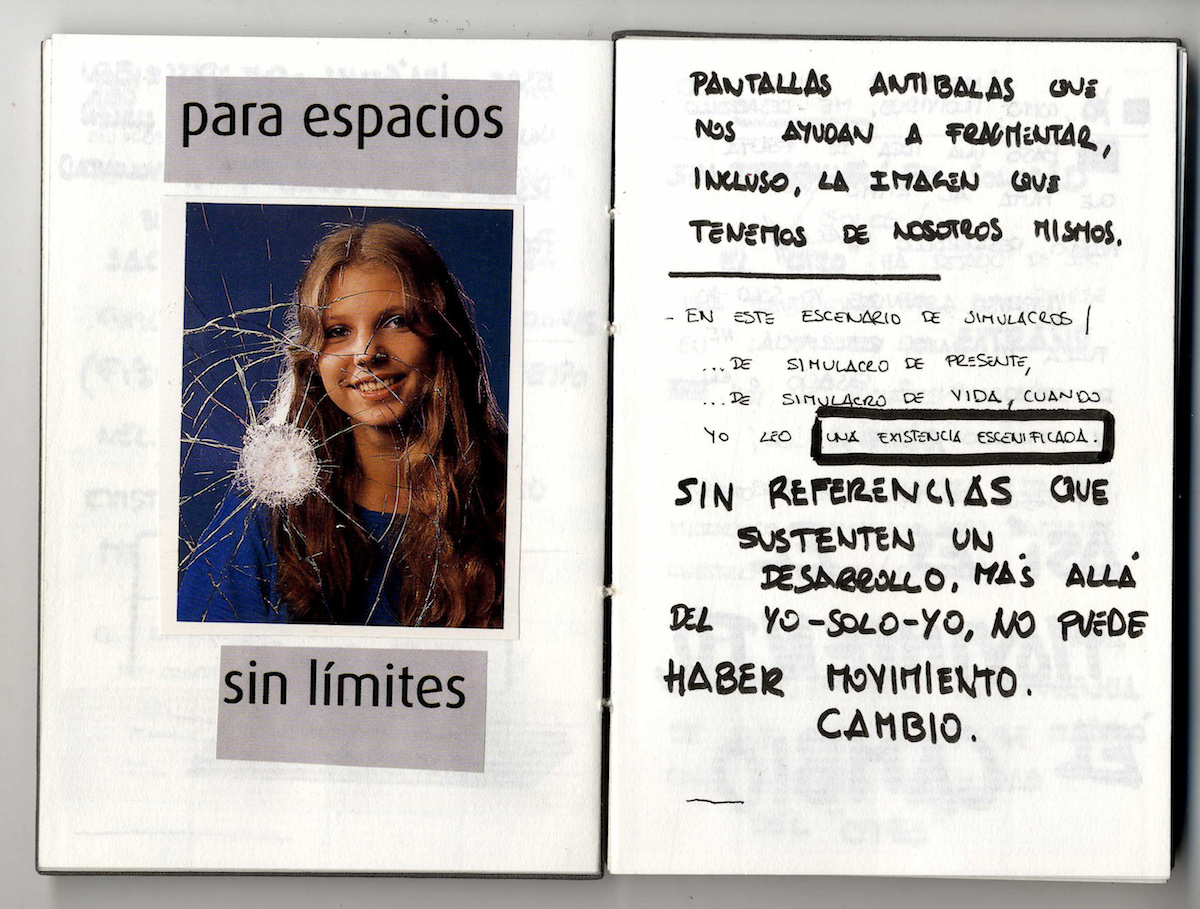 para espacios
sin límites
PANTALLAS ANTIBALAS QUE
NOS AYUDAN A FRAGMENTAR,
INCLUSO, LA IMAGEN QUE
TENEMOS DE NOSOTROS MISMOS.
- EN ESTE ESCENARIO DE SIMULACROS /
...DE SIMULACRO DE PRESENTE,
...DE SIMULACRO DE VIDA, CUANDO
YO LEO UNA EXISTENCIA ESCENIFICADA.
SIN REFERENCIAS QUE
SUSTENTEN UN
DESARROLLO, MÁS ALLÁ
DEL YO-SOLO-YO, NO PUEDE
HABER MOVIMIENTO.
CAMBIO.